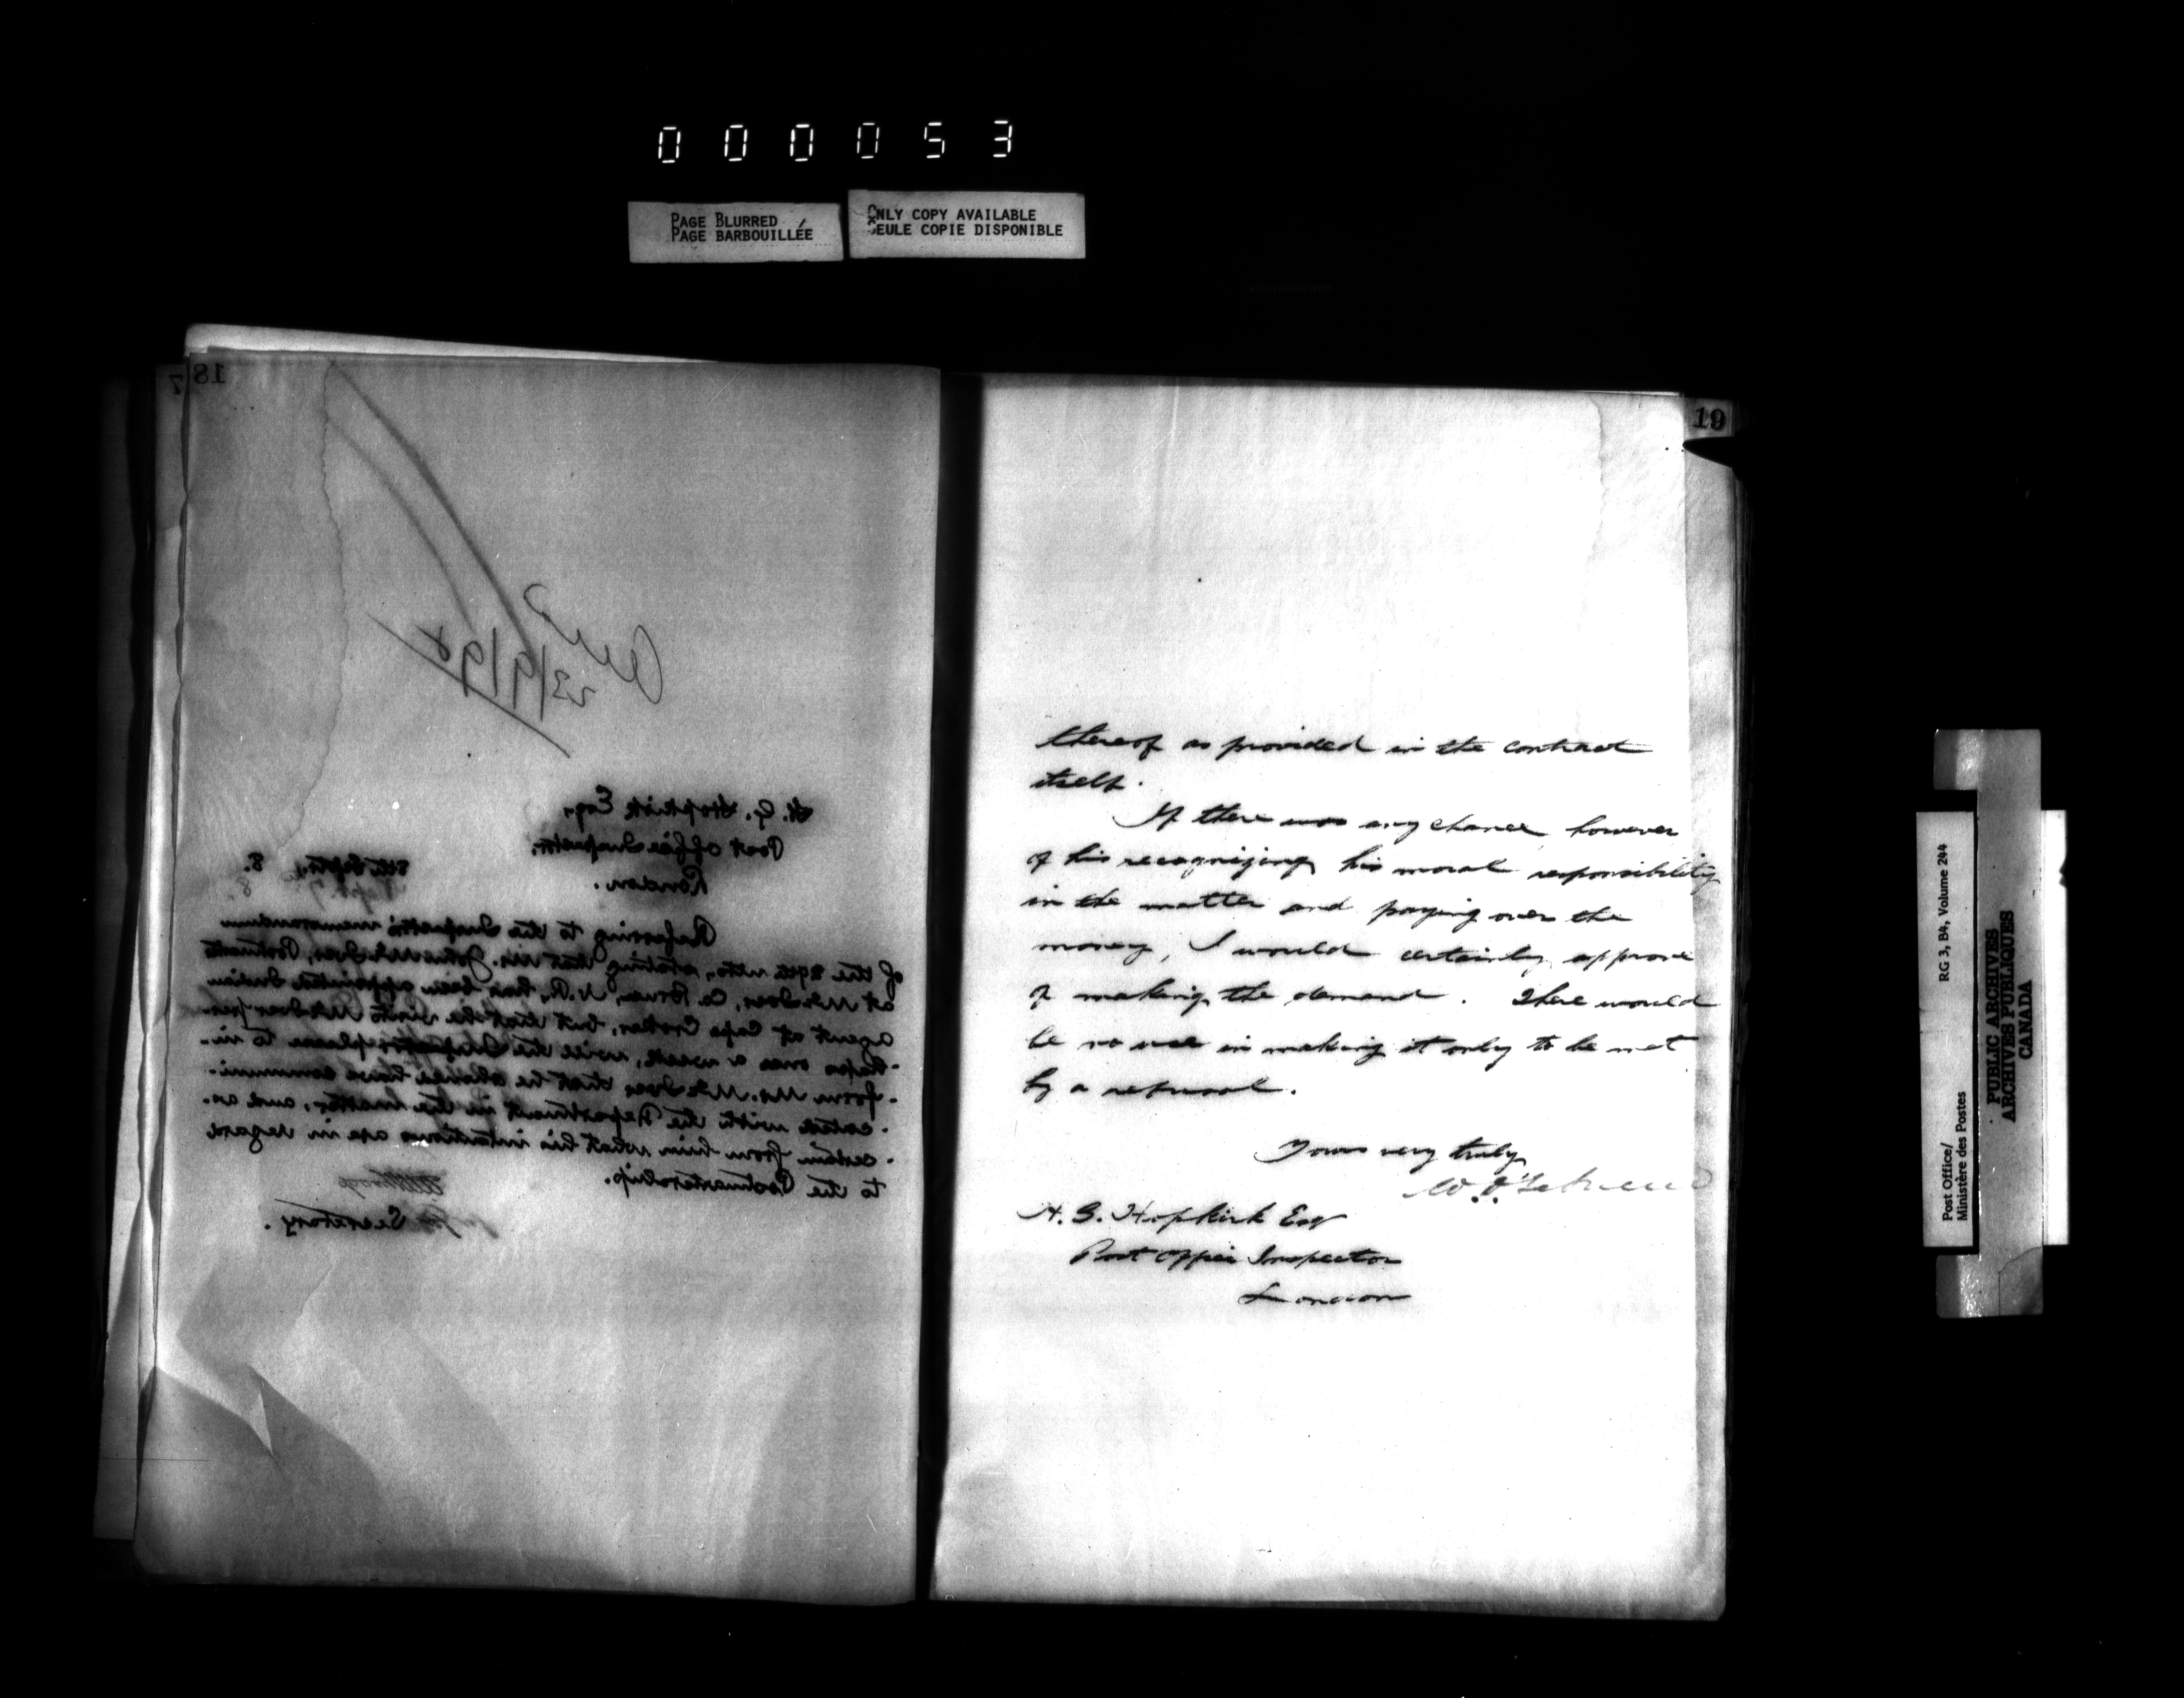 000053
PAGE BLURRED
PAGE BARBOUILLÉE
ONLY COPY AVAILABLE
SEULE COPIE DISPONIBLE
7
18
23/9/98
H. G. Hopkirk Esq.,
Post Office Inspector.
London.
8th Septr., 8.
Referring to the Inspector's memorandum
of the 29th ulto, stating that Mr. John McIver, Postmaster
at McIver, Co. Bruce, N.R., has been appointed Indian
agent at Cape Croker, but that he visits McIver per-
-haps once a week, will the Inspector please to in-
-form Mr. McIver that he should have communi-
-cated with the Department in the matter, and as-
-certain from him what his intentions are in regard
to the Postmastership.
Secretary.
19
thereof as provided in the contract
itself.
If there was any chance, however
of his recognizing his moral responsibility
in the matter and paying over the
money, I would certainly approve
of making the demand. There would
be no use in making it only to be met
by a refusal.
Yours very truly
H. G. Hopkirk Esq
Post Office Inspector
London
Post Office/
Ministère des Postes
RG 3, B4, Volume 244
PUBLIC ARCHIVES
ARCHIVES PUBLIQUES
CANADA